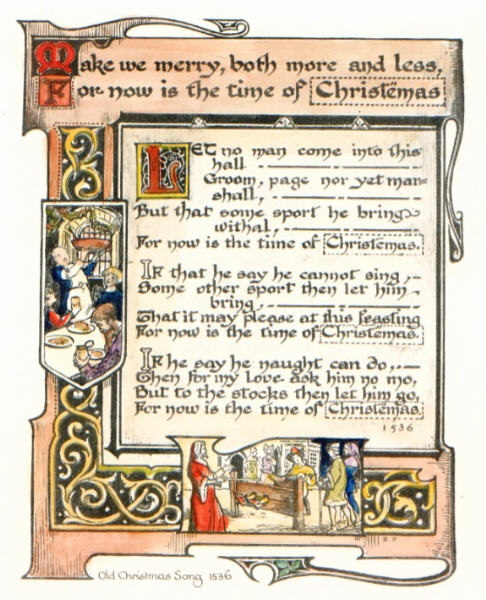 Make we merry, both more and less,
For now is the time of Christëmas
LET no man come into this
hall
Groom, page nor yet mar=
shall,
But that some sport he bring
withal,
For now is the time of Christëmas.
IF that he say he cannot sing,
Some other sport then let him
bring
That it may please at this feasting
For now is the time of Christëmas.
IF he say he naught can do,
Then for my love ask him no mo,
But to the stocks then let him go,
For now is the time of Christëmas.
1536
Old Christmas Song 1536